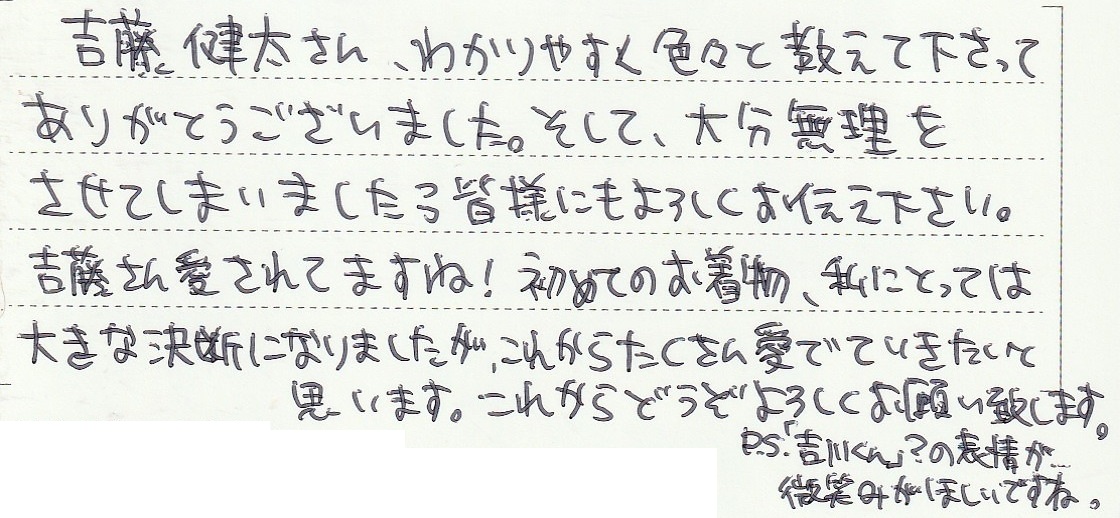 吉藤健太さん、わかりやすく色々と教えて下さって
ありがとうございました。そして、大分無理を
させてしまいました。皆様にもよろしくお伝え下さい。
吉藤さん愛されてますね！初めてのお着物、私にとっては
大きな決断になりましたが、これからたくさん愛でていきたいと
思います。これからどうぞよろしくお願い致します。
P.S.「吉川くん」？の表情が…
微笑みがほしいですね。